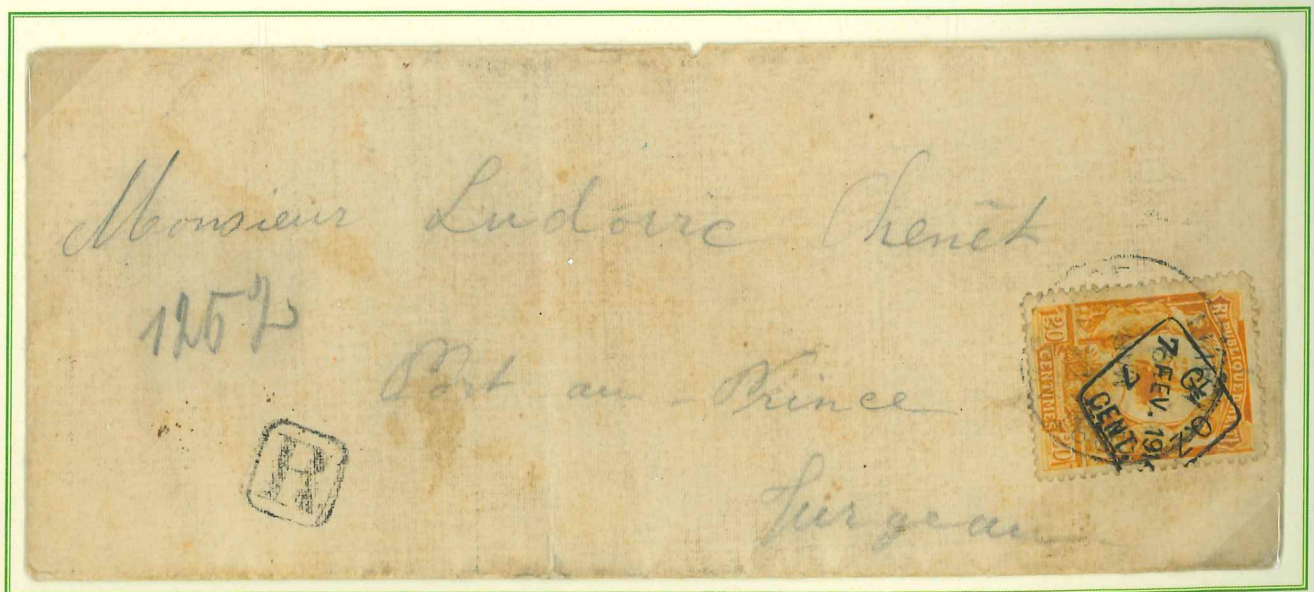 Monsieur Ludovic Chenêt
1257
Port au-Prince
Turgeau
R
RÉPUBLIQUE
20 CENTIMES 20
GL O.Z.
7 FEV. 19
CENT